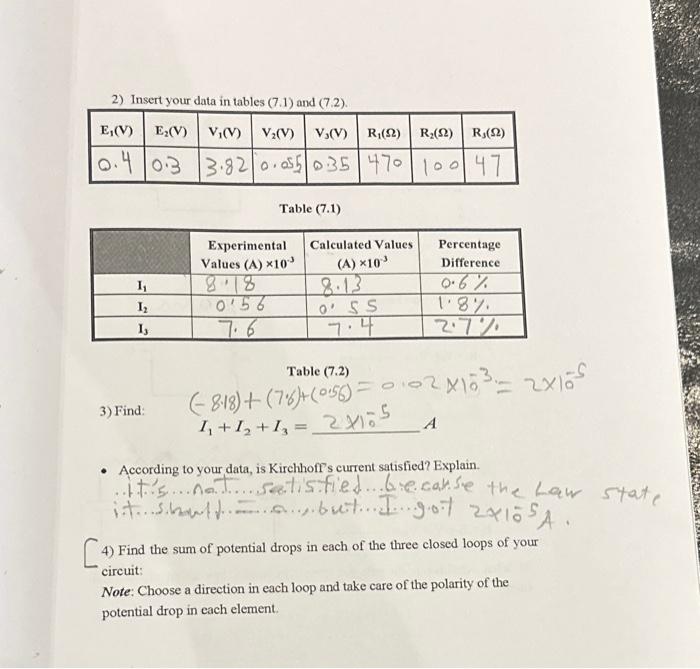 2) Insert your data in tables (7.1) and (7.2).
E₁(V) E₂(V) V₁(V) V₂(V) V₃(V) R₁(Ω) R₂(Ω) R₃(Ω)
0.4 0.3 3.82 0.055 0.35 470 100 47
Table (7.1)
Experimental Values (A) ×10⁻³ Calculated Values (A) ×10⁻³ Percentage Difference
I₁ 8.18 8.13 0.6%
I₂ 0.56 0.55 1.8%
I₃ 7.6 7.4 2.7%
Table (7.2)
(-8.18)+(7.6)+(0.56) = 0.02×10⁻³ = 2×10⁻⁵
3) Find:
I₁ + I₂ + I₃ = 2×10⁻⁵ A
• According to your data, is Kirchhoff's current satisfied? Explain.
It's not satisfied because the Law state
it should = 0, but I got 2×10⁻⁵A.
4) Find the sum of potential drops in each of the three closed loops of your
circuit:
Note: Choose a direction in each loop and take care of the polarity of the
potential drop in each element.